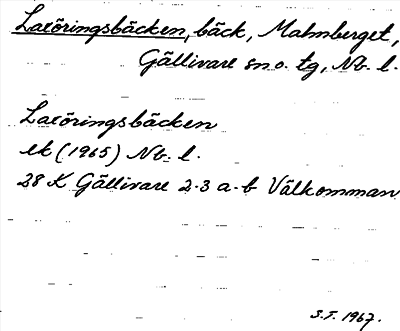 Laxöringsbäcken, bäck, Malmberget,
Gällivare sn o. tg, Nb. l.
Laxöringsbäcken
ek (1965) Nb. l.
28 K Gällivare 2-3 a-b Välkomman
S.F. 1967.